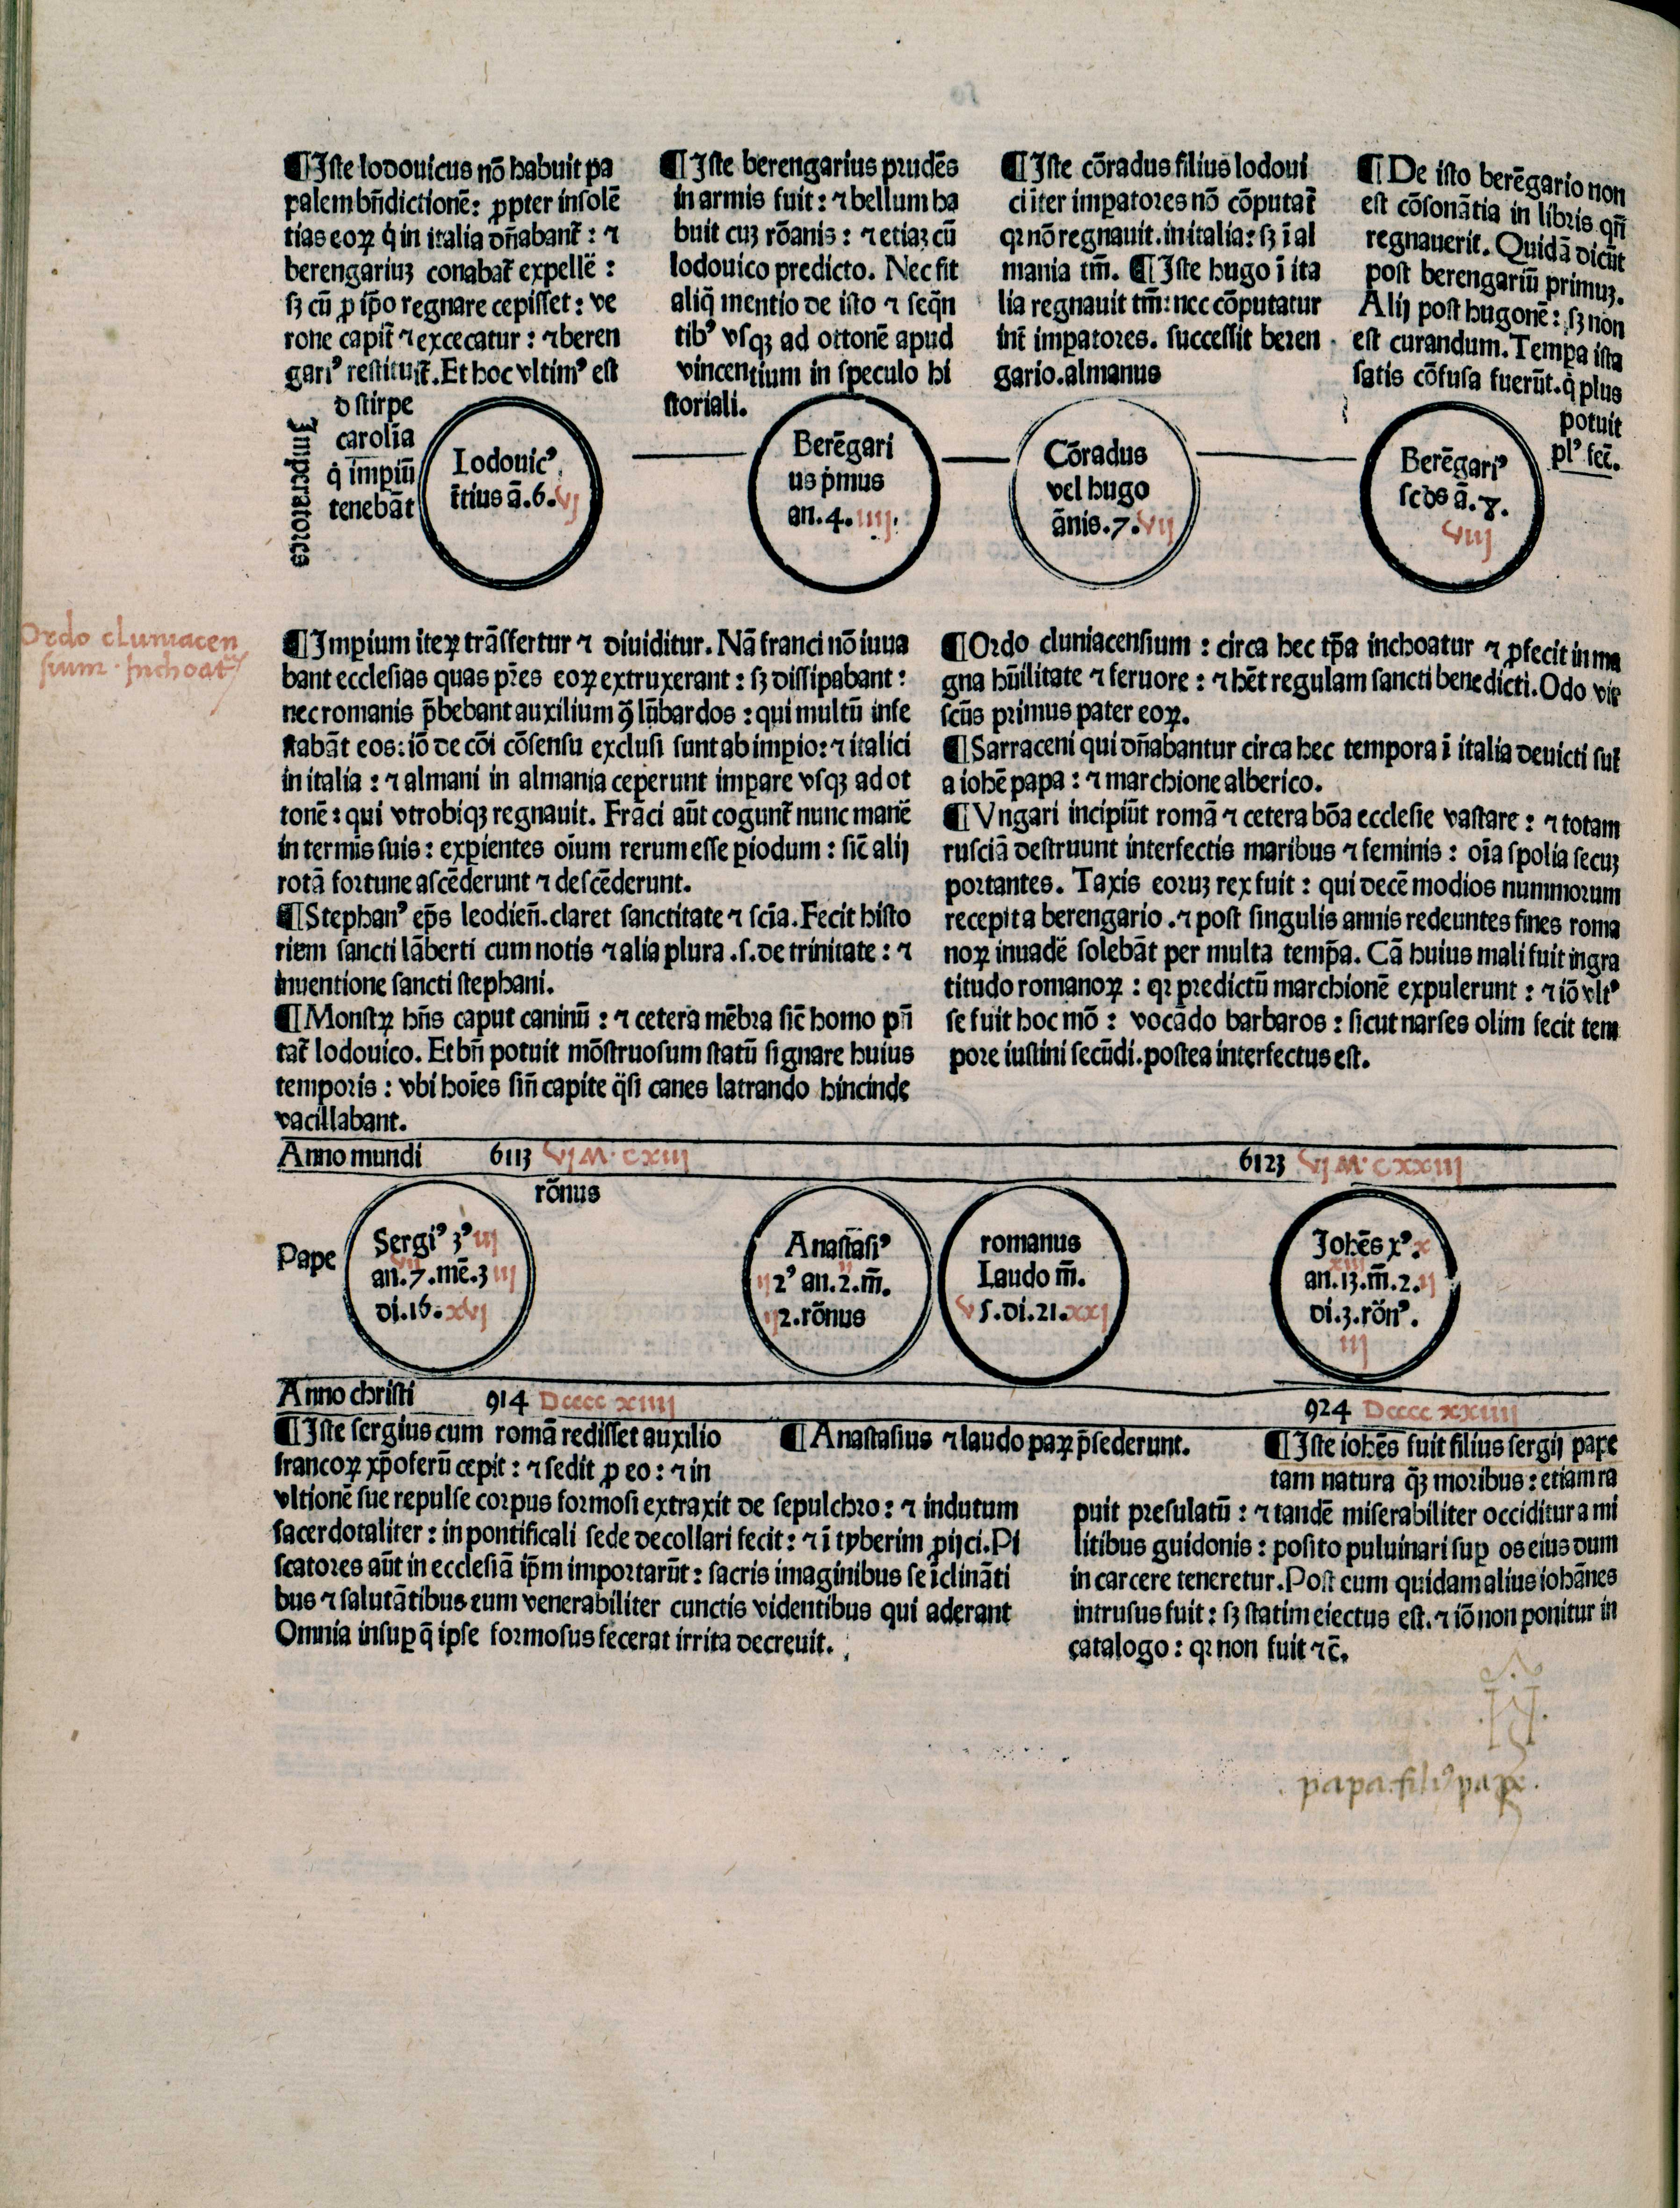 ¶Iste lodouicus nō habuit pa
palem bñdictionē: ꝓpter insolē
tias eoꝝ q̇ in italia dn̄abant᷑: ⁊
berengariuꝫ conabat᷑ expellē:
sꝫ cū ꝓ ip̄o regnare cepisset: ve
rone capit᷑ ⁊ excecatur: ⁊ beren
gariꝰ restituit᷑. Et hoc vltimꝰ est
d stirpe
carolīa
q̇ impiū
tenebāt
¶Iste berengarius prudēs
in armis fuit: ⁊ bellum ha
buit cuꝫ rōanis: ⁊ etiaꝫ cū
lodouico predicto. Nec fit
aliq̄ mentio de isto ⁊ seq̄n
tibꝰ vsqꝫ ad ottonē apud
vincentium in speculo hi
storiali.
¶Iste cōradus filius lodoui
ci iter imꝑatores nō cōputat᷑
qꝛ nō regnauit. in italia: sꝫ ī al
mania tm̄. ¶Iste hugo ī ita
lia regnauit tm̄: nec cōputatur
int᷑ imꝑatores. successit beren
gario. almanus
¶De isto berēgario non
est cōsonātia in libris qn̄
regnauerit. Quidā dicūt
post berengariū primuꝫ.
Alij post hugonē: sꝫ non
est curandum. Temꝑa ista
satis cōfusa fuerūt. q̇ plus
potuit
plꝰ fec̄.
Imperatores
Lodouicꝰ
t᷑tius ā. 6. vj
Berēgari
us ṗmus
an. 4. iiij.
Cōradus
vel hugo
ānis. 7. vij
Berēgariꝰ
scds ā. 8.
viij
Ordo cluniacen
sium. Inchoat᷑
¶Imꝑium iteꝝ trāsfertur ⁊ diuiditur. Nā franci nō iuua
bant ecclesias quas pr̄es eoꝝ extruxerant: sꝫ dissipabant:
nec romanis p̄bebant auxilium ꝯ lūbardos: qui multū infe
stabāt eos: iō de cōi cōsensu exclusi sunt ab imꝑio: ⁊ italici
in italia: ⁊ almani in almania ceperunt imꝑare vsqꝫ ad ot
tonē: qui vtrobiqꝫ regnauit. Frāci aūt cogunt᷑ nunc manē
in termīs suis: exꝑientes oīum rerum esse ꝑiodum: sic̄ alij
rotā fortune ascēderunt ⁊ descēderunt.
¶Stephanꝰ ep̄s leodien̄. claret sanctitate ⁊ scīa. Fecit histo
riam sancti lāberti cum notis ⁊ alia plura .s. de trinitate: ⁊
inuentione sancti stephani.
¶Monstꝝ hn̄s caput caninū: ⁊ cetera mēbra sic̄ homo pn̄
tat᷑ lodouico. Et bn̄ potuit mōstruosum statū signare huius
temporis: vbi hoīes sin̄ capite q̄si canes latrando hincinde
vacillabant.
¶Ordo cluniacensium: circa hec tp̄a inchoatur ⁊ ꝓfecit in ma
gna hūilitate ⁊ feruore: ⁊ hēt regulam sancti benedicti. Odo vir
scūs primus pater eoꝝ.
¶Sarraceni qui dn̄abantur circa hec tempora ī italia deuicti sūt
a iohē papa: ⁊ marchione alberico.
¶Vngari incipiūt romā ⁊ cetera bōa ecclesie vastare: ⁊ totam
rusciā destruunt interfectis maribus ⁊ feminis: oīa spolia secuꝫ
portantes. Taxis eoruꝫ rex fuit: qui decē modios nummorum
recepit a berengario. ⁊ post singulis annis redeuntes fines roma
noꝝ inuadē solebāt per multa temp̄a. Cā huius mali fuit ingra
titudo romanoꝝ: qꝛ predictū marchionē expulerunt: ⁊ iō vltꝰ
se fuit hoc mō: vocādo barbaros: sicut narses olim fecit tem
pore iustini secūdi. postea interfectus est.
Anno mundi 6113 vj M. cxiij 6123 vj M. cxxiij
rōnus
Pape
Sergiꝰ 3ꝰ iij
an. 7. mē. 3 iij
di. 16. xvj
Anastasiꝰ
ij 2ꝰ an. 2. m̄.
ij 2. rōnus
romanus
Laudo m̄.
v 5. di. 21. xxj
Johēs xꝰ. x
xiij
an. 13. m̄. 2. ij
di. 3. rōnꝰ.
iij
Anno christi 914 Dcccc xiiij 924 Dcccc xxiiij
¶Iste sergius cum romā redisset auxilio
francoꝝ xp̄oferū cepit: ⁊ sedit ꝓ eo: ⁊ in
vltionē sue repulse corpus formosi extraxit de sepulchro: ⁊ indutum
sacerdotaliter: in pontificali sede decollari fecit: ⁊ ī tyberim ꝓijci. Pi
scatores aūt in ecclesiā ip̄m importarūt: sacris imaginibus se īclināti
bus ⁊ salutātibus eum venerabiliter cunctis videntibus qui aderant
Omnia insuꝑ q̄ ipse formosus fecerat irrita decreuit.
¶Anastasius ⁊ laudo paꝝ p̄sederunt.
¶Iste iohēs fuit filius sergij pape
tam natura q̄ꝫ moribus: etiam ra
puit presulatū: ⁊ tandē miserabiliter occiditur a mi
litibus guidonis: posito puluinari suꝑ os eius dum
in carcere teneretur. Post cum quidam alius iohānes
intrusus fuit: sꝫ statim eiectus est. ⁊ iō non ponitur in
catalogo: qꝛ non fuit ⁊c̄.
papa filiꝰ pape.